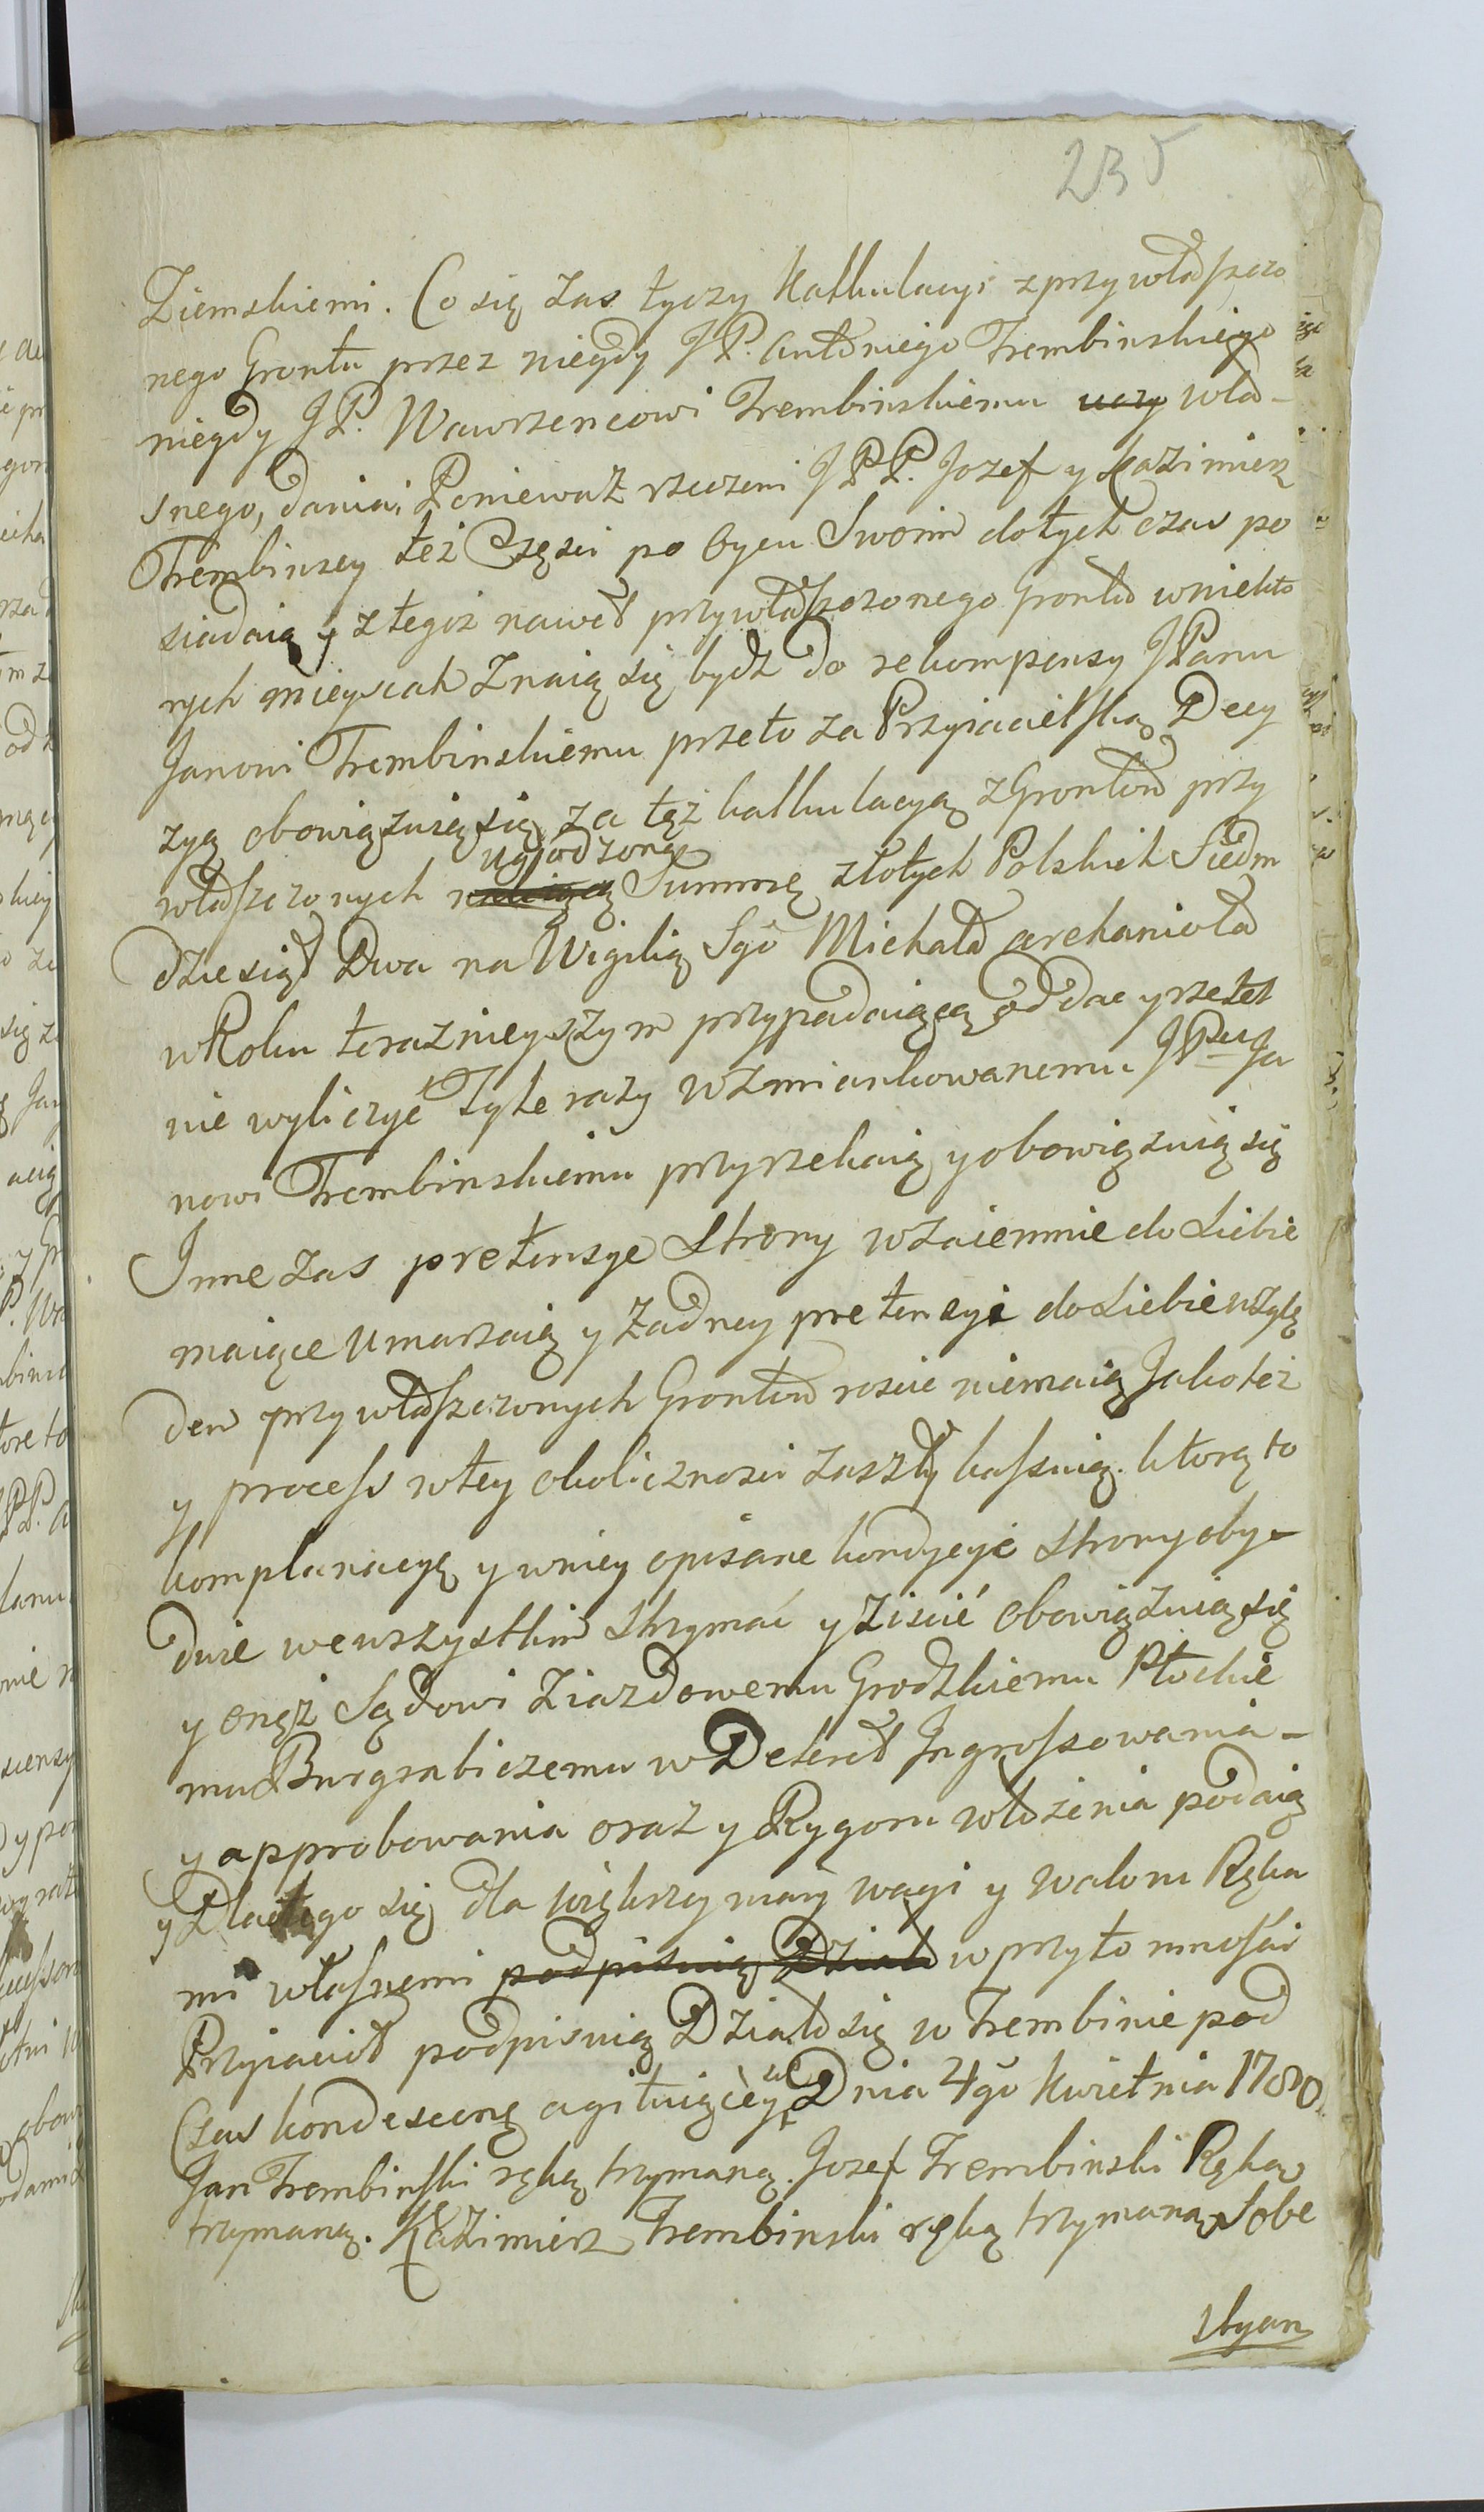 235
Ziemskiemi. Co się zas tyczy Kalkulacyi z przywłaszczo
nego Grontu przez niegdy JP. Antoniego Trembinskiego
niegdy JP. Wawrzencowi Trembinskiemu wła-
snego, dania, Ponieważ rzeczeni JPP. Jozef y Kazimierz
Trembinscy też Częsci po Oycu Swoim dotych czas po
siadaią y z tegoż nawet przywłaszczonego Grontu w niekto
rych mieyscach Znaią się bydz do rekompensy JPanu
Janowi Trembinskiemu przeto za Przyiacielską Decy
zyą obowięzuią się za tęż kalkulacyą z Grontow przy
właszczonych ugodzoną Summę złotych Polskich Siedm
dziesiąt Dwa na Wigilią Sgo Michała archanioła
w Roku terazneyszym przypadaiącą oddac y rzetel
nie wyliczyć Tyle razy wzmiankowanemu JPnu Ja
nowi Trembinskiemu przyrzekaią y obowięzuią się
Inne zas pretensye Strony wzaiemnie do Siebie
maiące umarzaią y żadney pretensyi do Siebie wzglę
dem przywłaszczonych Grontow roscic niemaią Jako też
y process w tey okolicznosci zaszły kassuią. ktorą to
komplanacyę y wniey opisane kondycye Strony oby-
dwie wewszystkim strzymać y ziscić obowięzuią się
y onęż Sądowi Ziazdowemu Grodzkiemu Płockie
mu Burgrabiczemu w Dekret Ingrossowania-
y approbowania oraz y Rygoru włożenia podaią
y Dla tego się dla większey mary wagi y waloru Ręka
mi własnemi podpisuią Działo w przytomnosci
Przyiacioł podpisuią Działo się w Trembinie pod
Czas kondescensę agituiącey się Dnia 4go Kwietnia 1780.
Jan Trembinski ręką trzymaną. Jozef Trembinski Ręką
trzymaną. Kazimierz Trembinski ręką trzymaną Sobe
styan